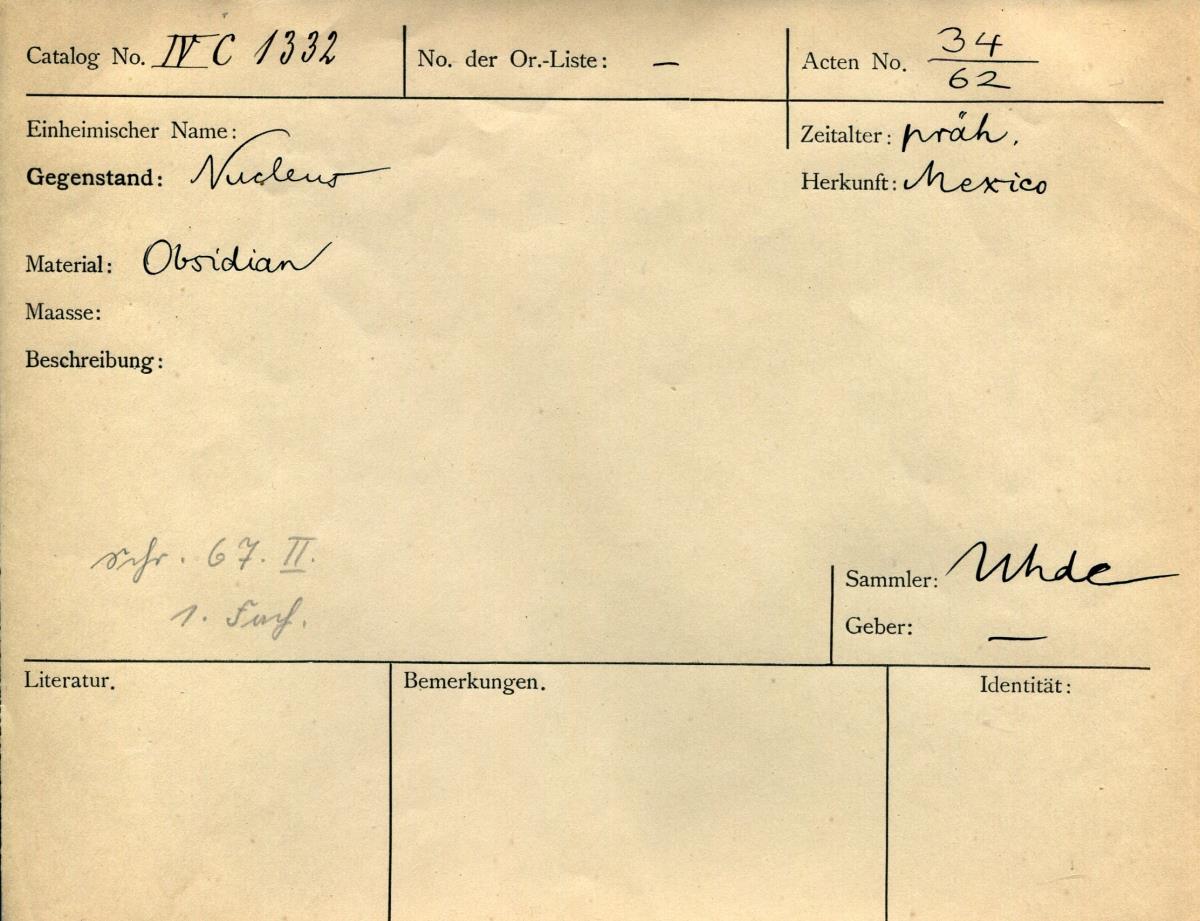 Catalog No. IV C 1332 No. der Or.-Liste: — Acten No. 34/62
Einheimischer Name: Zeitalter: präh.
Gegenstand: Nucleus Herkunft: Mexico
Material: Obsidian
Maasse:
Beschreibung:
Schr. 67. II.
1. Fach.
Sammler: Uhde
Geber: —
Literatur. Bemerkungen. Identität: